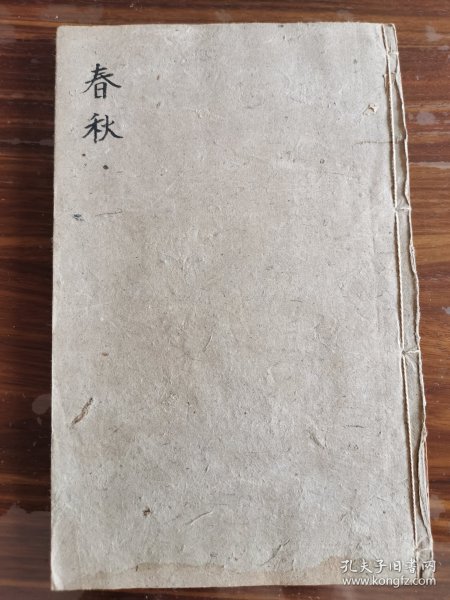 春秋
孔夫子旧书网
www.kongfz.com